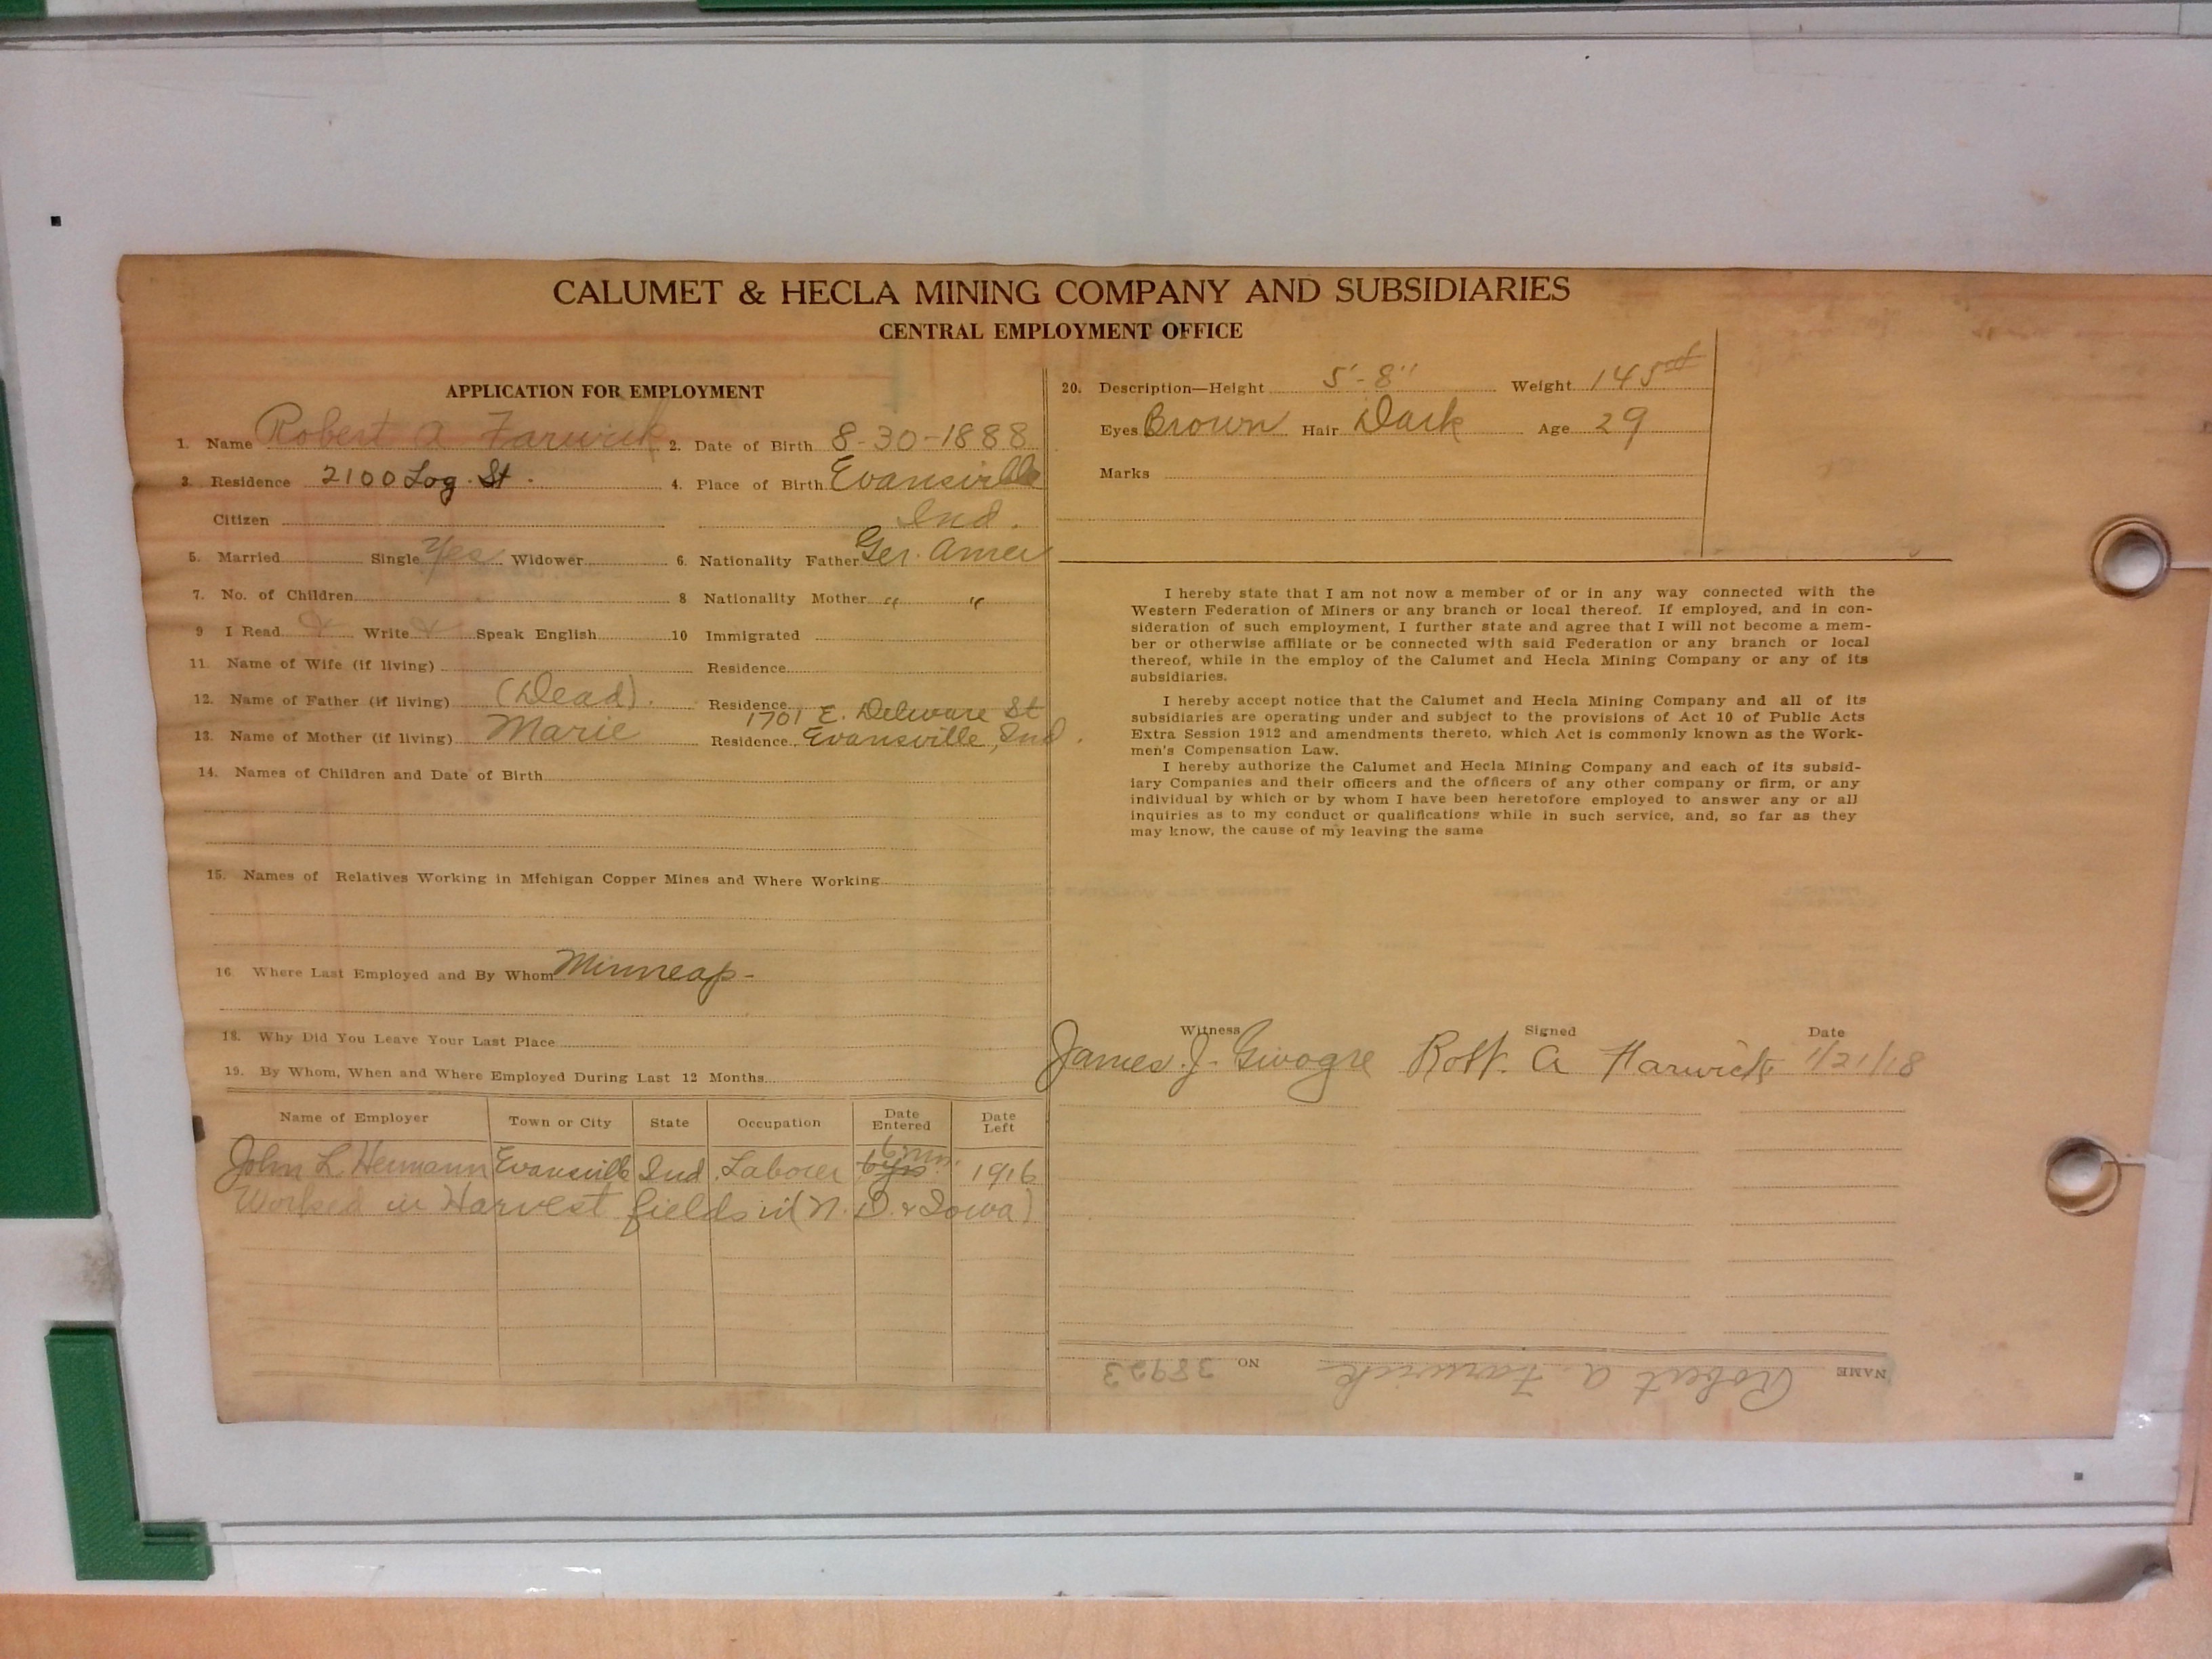 CALUMET & HECLA MINING COMPANY AND SUBSIDIARIES
CENTRAL EMPLOYMENT OFFICE
APPLICATION FOR EMPLOYMENT
1. Name Robert A Farwick 2. Date of Birth 8-30-1888
3. Residence 2100 Log. St. 4. Place of Birth Evansville
Citizen Ind.
5. Married Single Yes Widower 6. Nationality Father Ger. Amer
7. No. of Children 8 Nationality Mother " "
9 I Read Write Speak English 10 Immigrated
11. Name of Wife (if living) Residence
12. Name of Father (if living) (Dead). Residence
1701 E. Delware St
13. Name of Mother (if living) Marie Residence Evansville, Ind.
14. Names of Children and Date of Birth
15. Names of Relatives Working in Michigan Copper Mines and Where Working
16 Where Last Employed and By Whom Minneap-
18. Why Did You Leave Your Last Place
19. By Whom, When and Where Employed During Last 12 Months
Name of Employer Town or City State Occupation Date Entered Date Left
John L Hermann Evansville Ind. Laborer 6 mn. 6 yrs 1916
Worked in Harvest fields in (N. D. & Iowa)
20. Description—Height 5'-8" Weight 145#
Eyes Brown Hair Dark Age 29
Marks
I hereby state that I am not now a member of or in any way connected with the
Western Federation of Miners or any branch or local thereof. If employed, and in con-
sideration of such employment, I further state and agree that I will not become a mem-
ber or otherwise affiliate or be connected with said Federation or any branch or local
thereof, while in the employ of the Calumet and Hecla Mining Company or any of its
subsidiaries.
I hereby accept notice that the Calumet and Hecla Mining Company and all of its
subsidiaries are operating under and subject to the provisions of Act 10 of Public Acts
Extra Session 1912 and amendments thereto, which Act is commonly known as the Work-
men's Compensation Law.
I hereby authorize the Calumet and Hecla Mining Company and each of its subsid-
iary Companies and their officers and the officers of any other company or firm, or any
individual by which or by whom I have been heretofore employed to answer any or all
inquiries as to my conduct or qualifications while in such service, and, so far as they
may know, the cause of my leaving the same
Witness Signed Date
James J. Robt. A Farwick 1/21/18
NAME Robert A. Farwick NO 38923